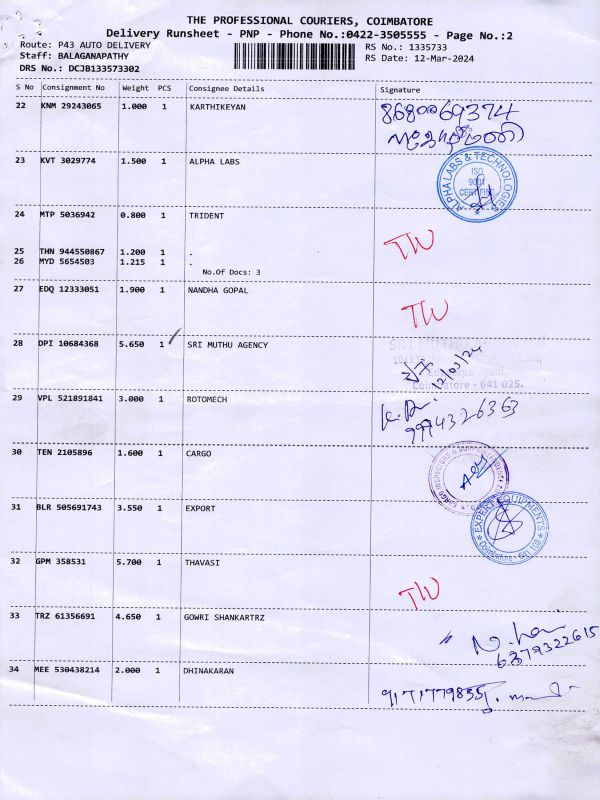 THE PROFESSIONAL COURIERS, COIMBATORE
Delivery Runsheet - PNP - Phone No.:0422-3505555 - Page No.:2
Route: P43 AUTO DELIVERY RS No.: 1335733
Staff: BALAGANAPATHY RS Date: 12-Mar-2024
DRS No.: DCJB133573302
S No Consignment No Weight PCS Consignee Details Signature
22 KNM 29243065 1.000 1 KARTHIKEYAN
23 KVT 3029774 1.500 1 ALPHA LABS
ALPHA LABS & TECHNOLOGIES
ISO
9001
CERTIFIED
24 MTP 5036942 0.800 1 TRIDENT
25 THN 944550867 1.200 1 .
26 MYD 5654503 1.215 1 .
No.Of Docs: 3
27 EDQ 12333051 1.900 1 NANDHA GOPAL
28 DPI 10684368 5.650 1 SRI MUTHU AGENCY
12/03/24
Coimbatore - 641 025.
29 VPL 521891841 3.000 1 ROTOMECH
9994326363
30 TEN 2105896 1.600 1 CARGO
31 BLR 505691743 3.550 1 EXPORT
EXPERT EQUIPMENTS
32 GPM 358531 5.700 1 THAVASI
33 TRZ 61356691 4.650 1 GOWRI SHANKARTRZ
6379322615
34 MEE 530438214 2.000 1 DHINAKARAN